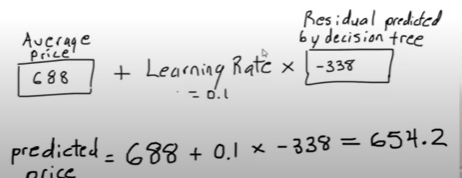 Average
Price
688
+ Learning Rate ×
= 0.1
Residual predicted
by decision tree
-338
predicted = 688 + 0.1 × -338 = 654.2
price